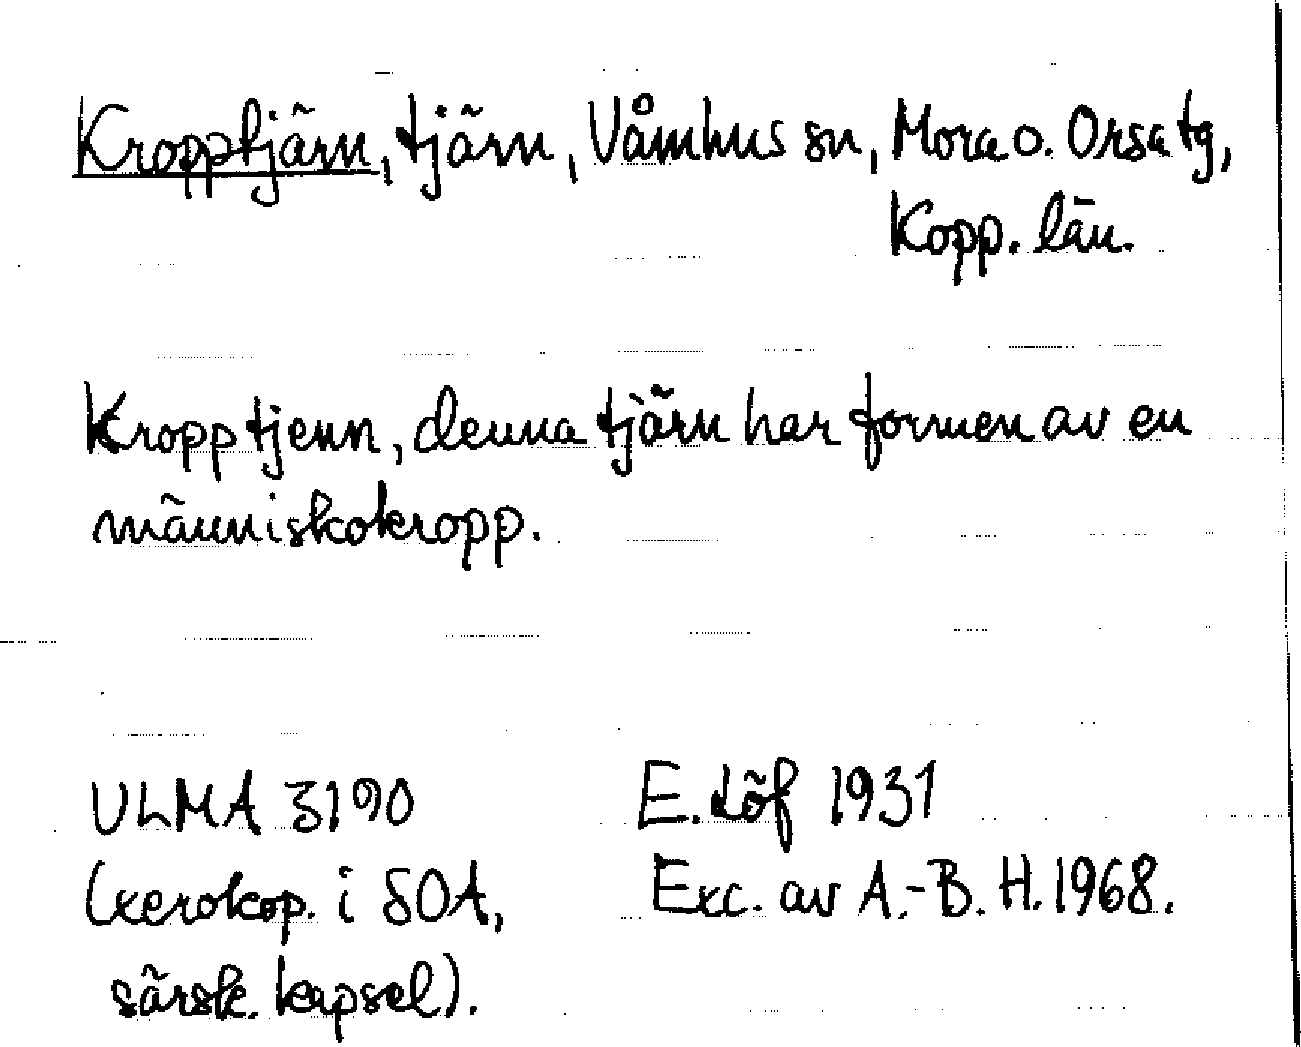 Kropptjärn, tjärn, Våmhus sn, Mora o. Orsa tg,
Kopp. län.
Kropptjenn, denna tjärn har formen av en
människokropp.
ULMA 3190 E. Löf 1931
(xerokop. i SOA, Exc. av A.-B. H. 1968.
särsk. kapsel).